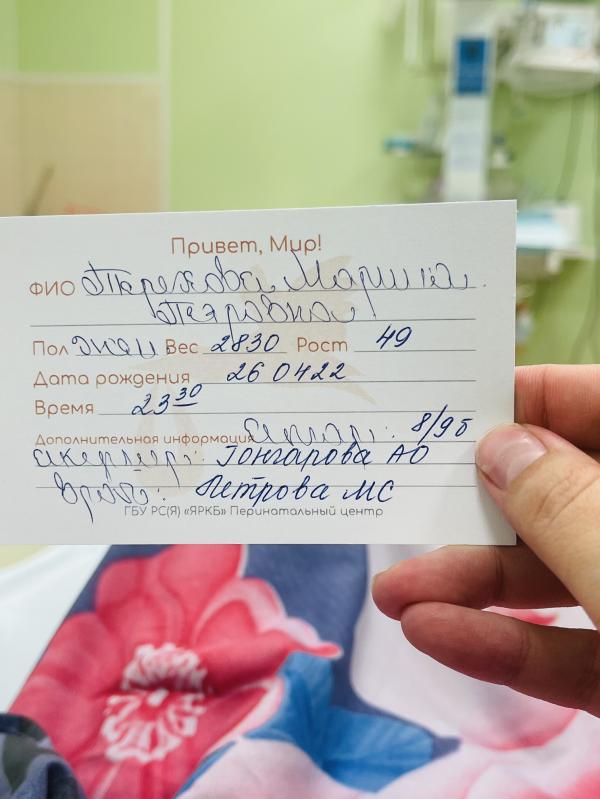 Привет, Мир!
ФИО Терехова Марина
Петровна
Пол жен Вес 2830 Рост 49
Дата рождения 26 04 22
Время 23 30
Дополнительная информация Апгар: 8/9б
акушер: Гончарова АО
Врач: Петрова МС
ГБУ РС(Я) «ЯРКБ» Перинатальный центр